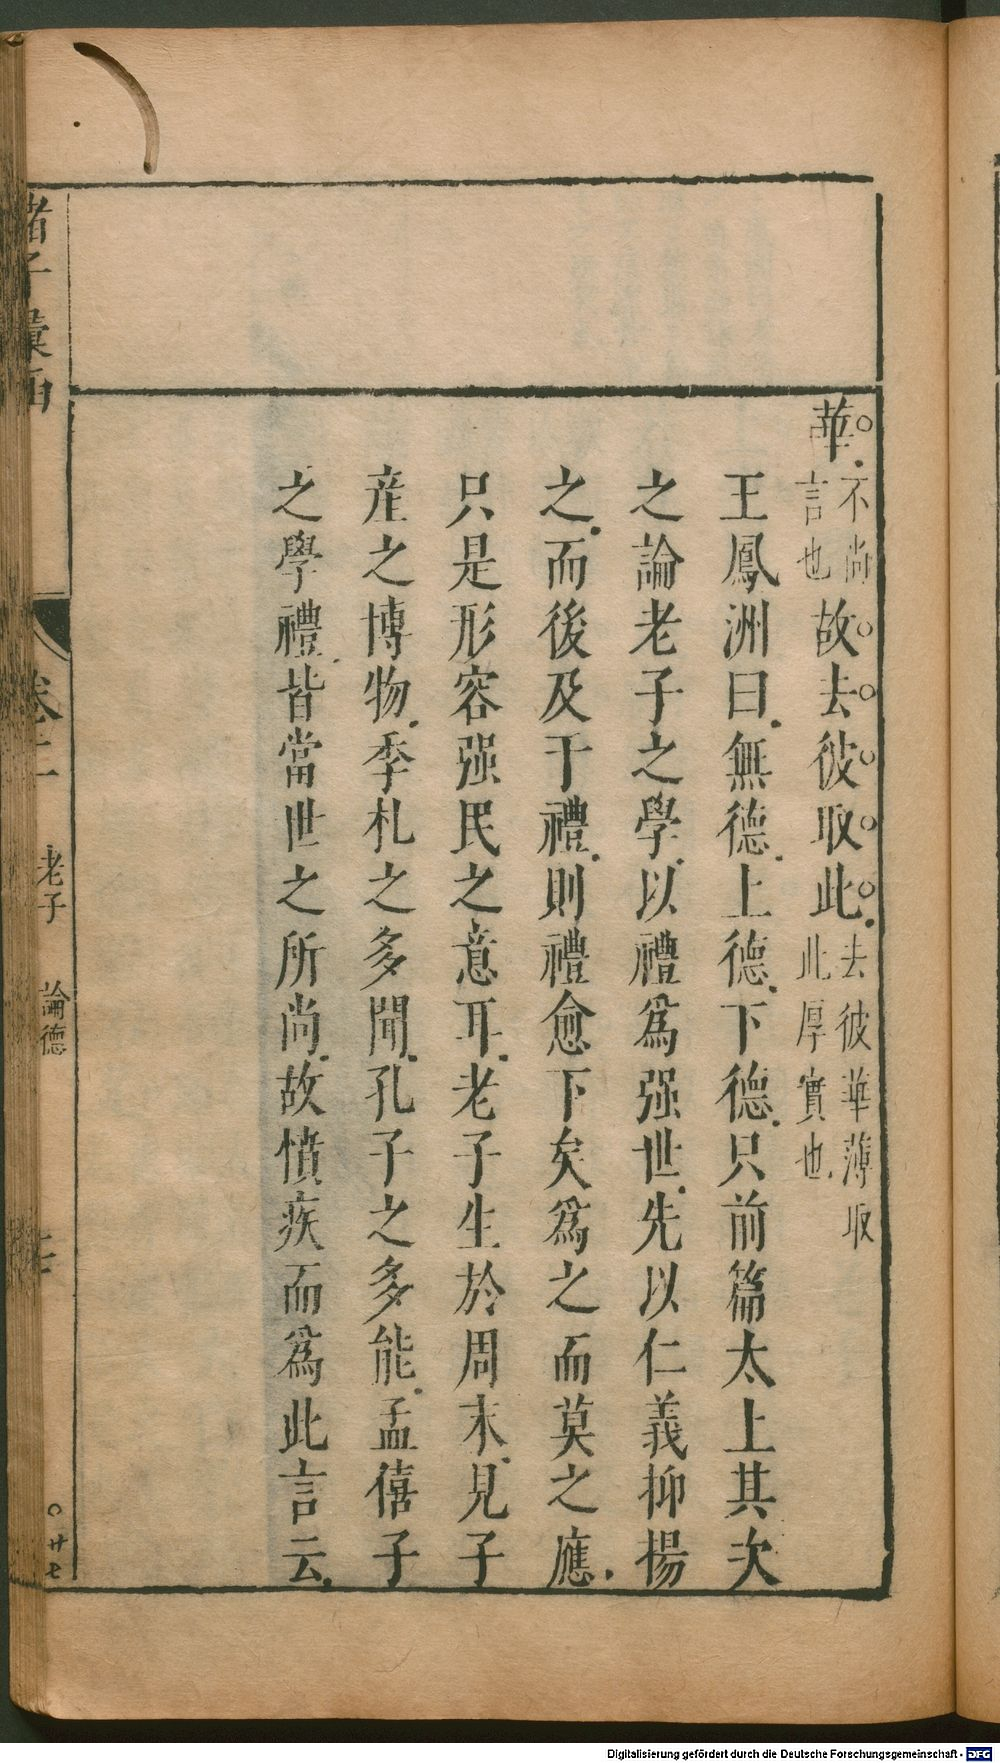 華不尚言也故去彼取此去彼華薄取此厚實也
王鳳洲曰無德上德下德只前篇太上其次
之論老子之學以禮爲强世先以仁義抑揚
之而後及于禮則禮愈下矣爲之而莫之應
只是形容强民之意耳老子生於周末見子
産之博物季札之多聞孔子之多能孟僖子
之學禮皆當世之所尚故憤疾而爲此言云
諸子彙函
卷二
老子
論德
廿七
Digitalisierung gefördert durch die Deutsche Forschungsgemeinschaft - DFG